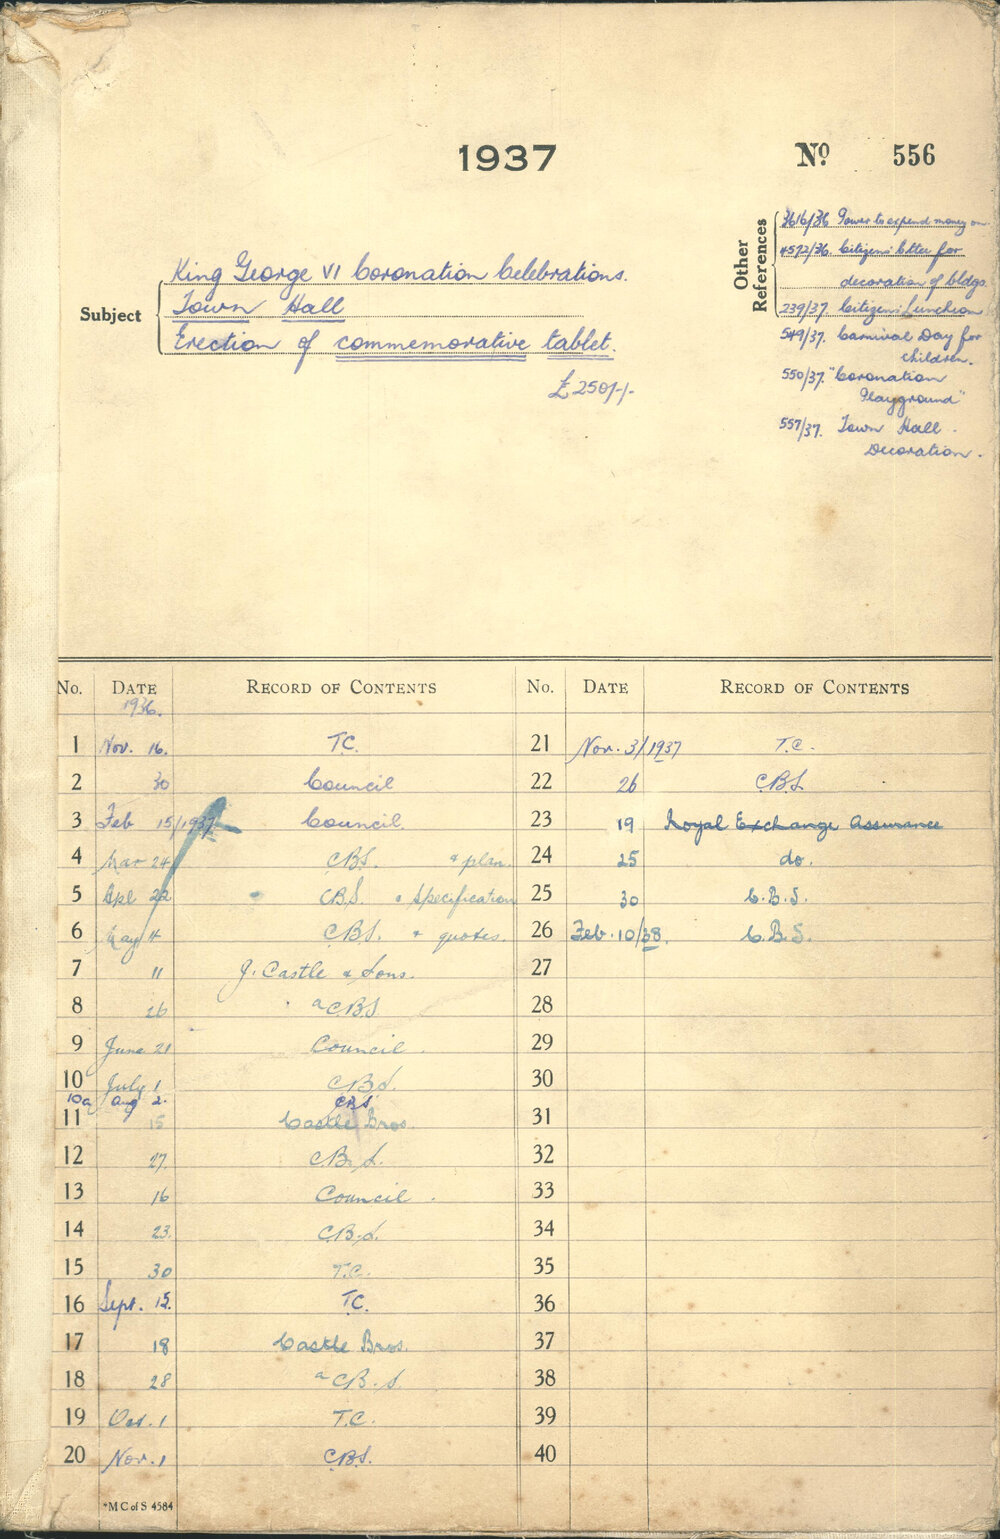 1937
No 556
Other References
3616/36 Power to expend money on
4572/36. Citizens' letter for
decoration of bldgs.
239/37. Citizens' Luncheon
549/37. Carnival Day for
Children.
550/37. "Coronation
Playground"
557/37. Town Hall -
Decoration.
Subject
King George VI Coronation Celebrations.
Town Hall
Erection of commemorative tablet.
£250/-/-
No. DATE RECORD OF CONTENTS No. DATE RECORD OF CONTENTS
1936.
1 Nov. 16. T.C. 21 Nov. 3/1937 T.C.
2 30 Council 22 26 C.B.S.
3 Feb 15/1937 Council. 23 19 Royal Exchange Assurance
4 Mar 24 C.B.S. & plan. 24 25 do.
5 Apl 22 C.B.S. & Specification 25 30 C.B.S.
6 May 4 C.B.S. & quotes. 26 Feb. 10/38. C.B.S.
7 11 J. Castle & Sons. 27
8 26 a C.B.S. 28
9 June 21 Council. 29
10 July 1 C.B.S. 30
10a Aug 2. C.B.S.
11 15 Castle Bros. 31
12 27. C.B.S. 32
13 16 Council. 33
14 23. C.B.S. 34
15 30 T.C. 35
16 Sept. 15. T.C. 36
17 18 Castle Bros. 37
18 28 a C.B.S. 38
19 Oct. 1 T.C. 39
20 Nov. 1 C.B.S. 40
*M C of S 4584